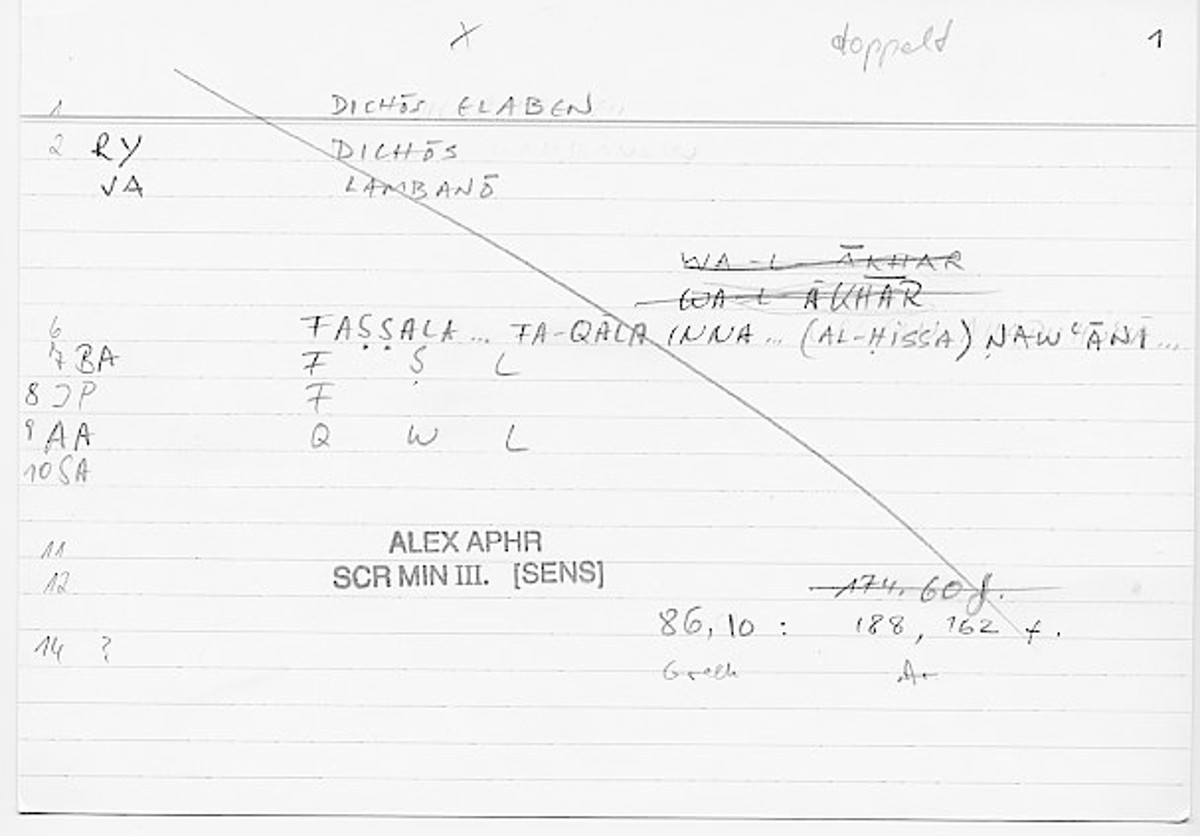 X doppelt 1
1 DICHŌS ELABEN
2 RY DICHŌS
VA LAMBANŌ
WA-L-ĀKHAR
WA-L-ĀKHAR
6 FAṢṢALA ... FA-QĀLA INNA ... (AL-ḤISSA) NAWʿĀNI ...
7 BA F Ṣ L
8 JP F
9 AA Q W L
10 SA
11 ALEX APHR
12 SCR MIN III. [SENS]
174, 60 f.
86, 10 : 188, 162 f.
14 ?
Griech Ar